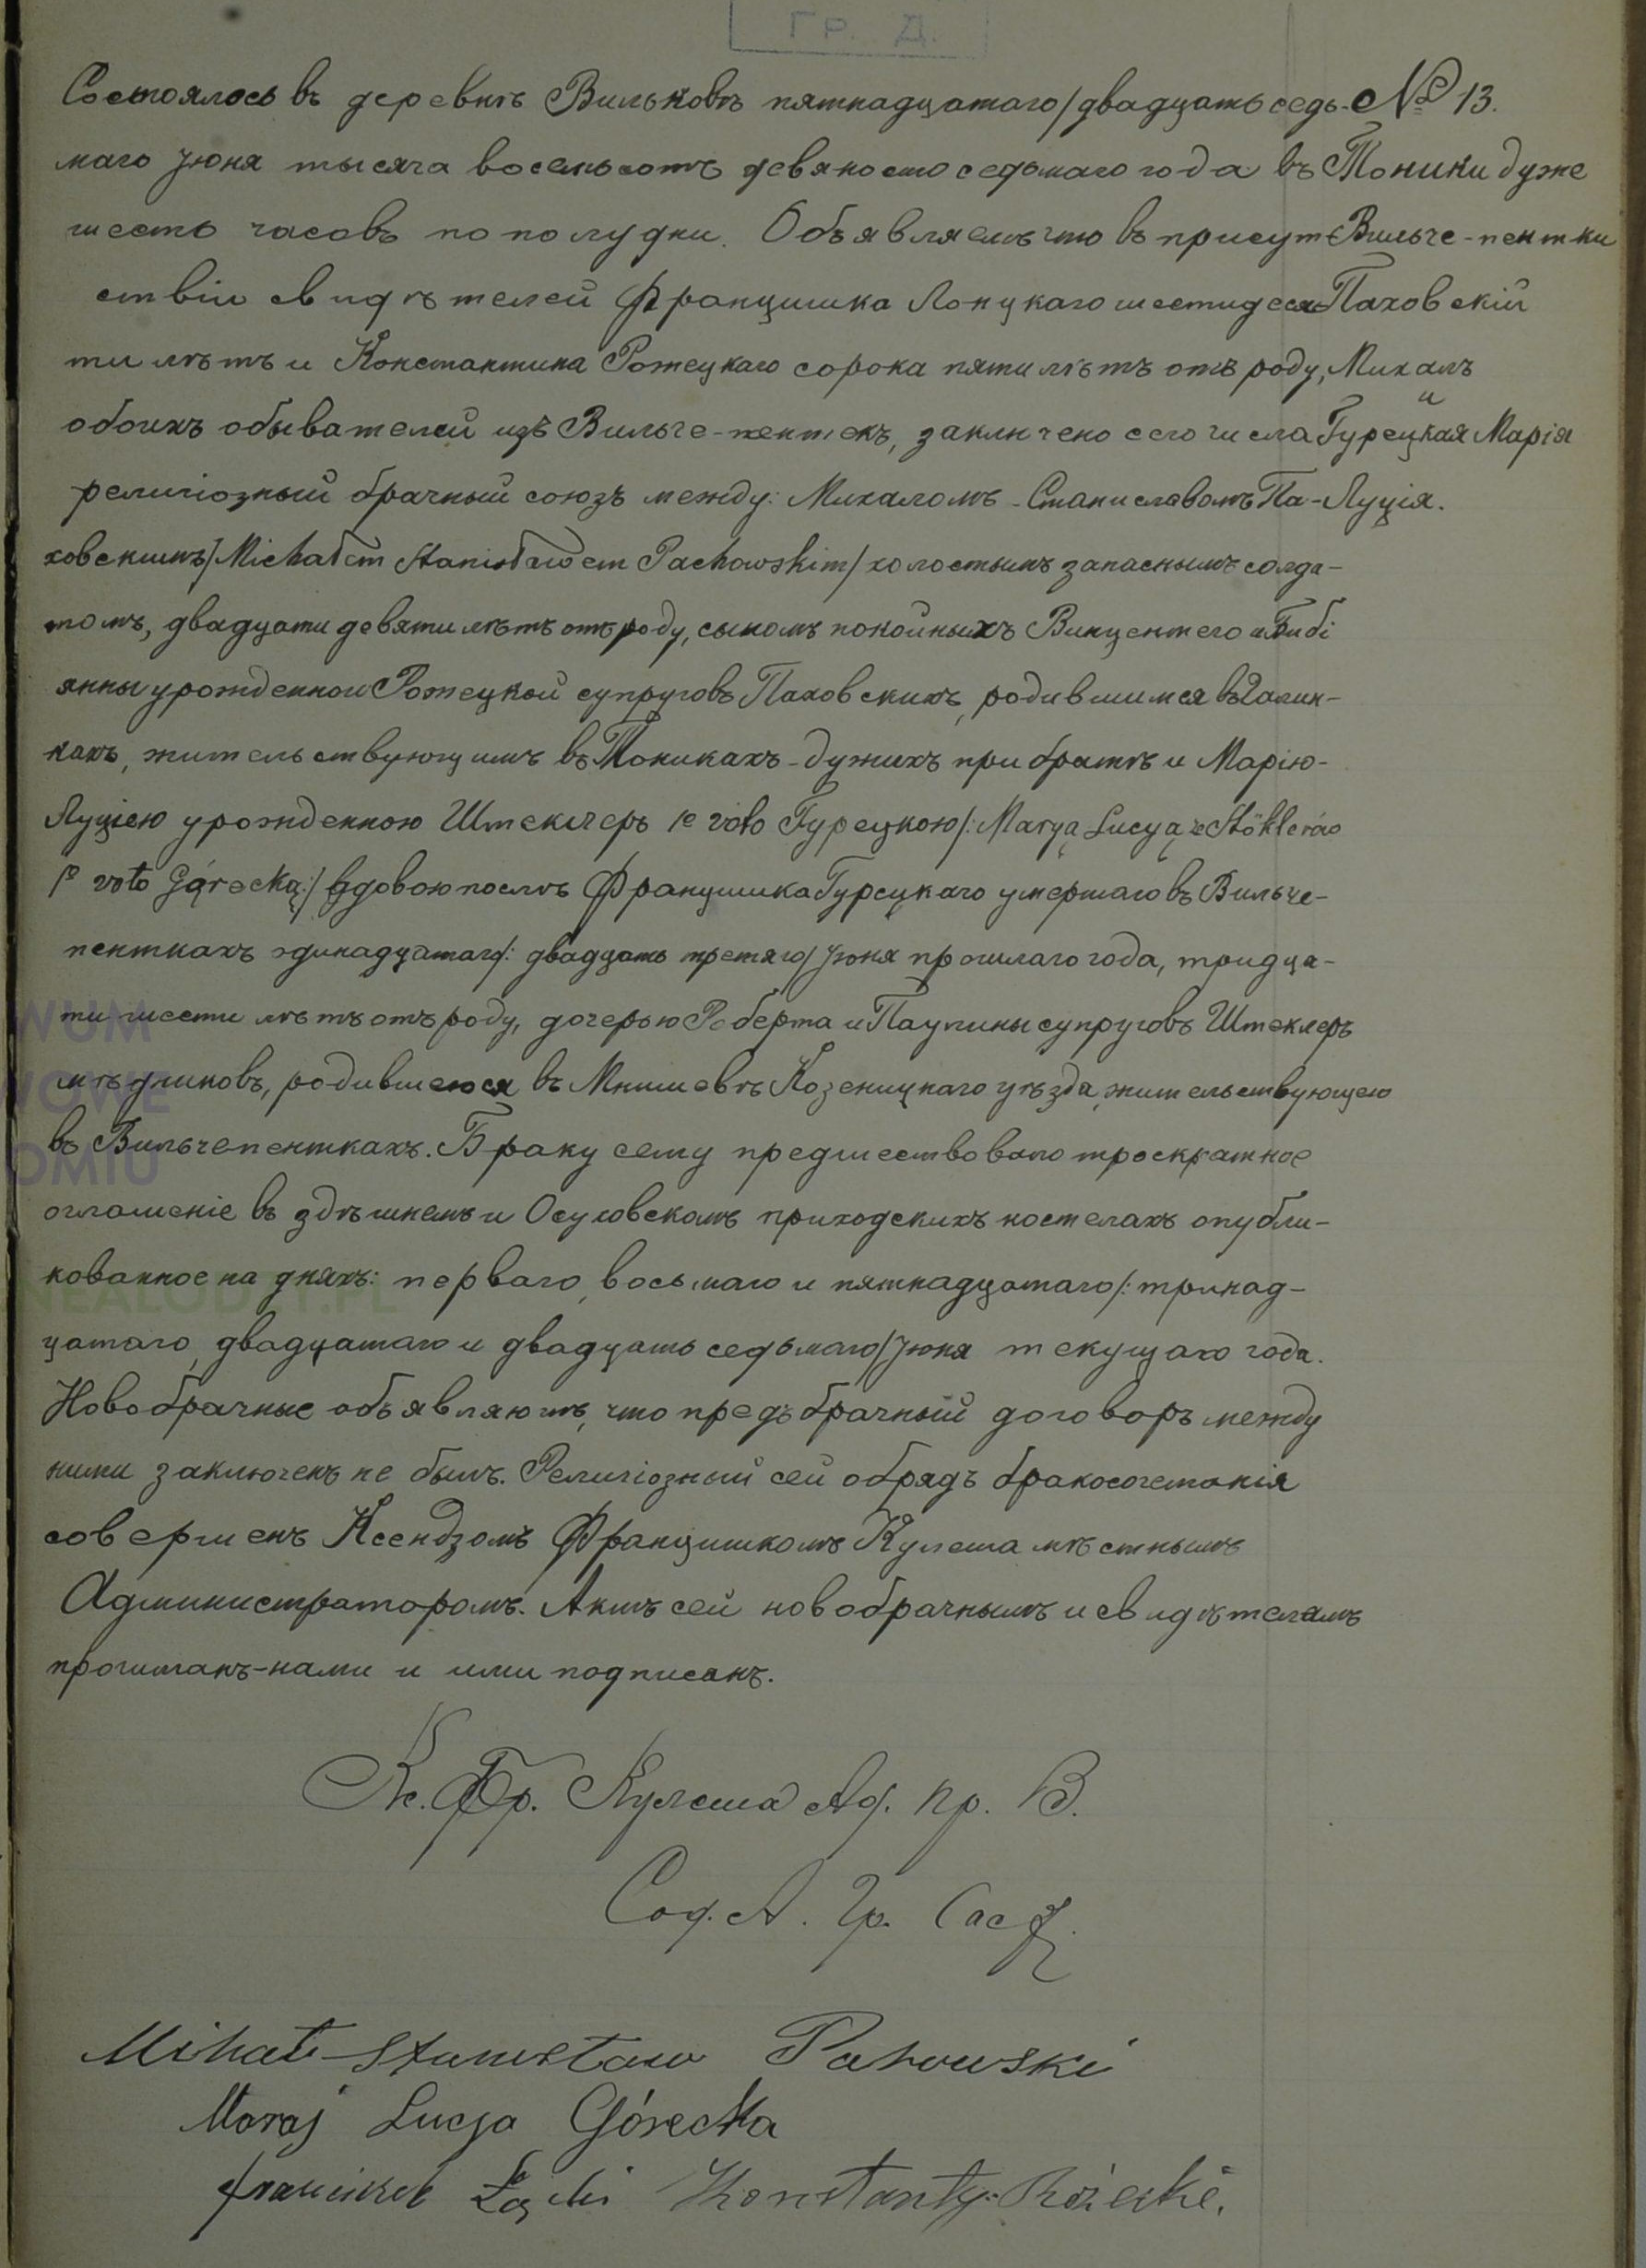 ГР. Д.
Состоялось въ деревнѣ Вильковѣ пятнадцатаго/двадцать седь- № 13.
маго Июня тысяча восемьсотъ девяносто седьмаго года въ Тоники дуже
шесть часовъ по полудни. Объявляемъ что въ присут- Вильче-пентки
ствіи свидѣтелей Францишка Лонцкаго шестидеся- Паховскій
ти лѣтъ и Константина Рожецкаго сорока пяти лѣтъ отъ роду, Михалъ
и
обоихъ обывателей изъ Вильче-пентекъ, заключено сего числа Гурецкая Марія
религіозный брачный союзъ между: Михаломъ-Станиславомъ Па- Луція.
ховскимъ/Michałem Stanisławem Pachowskim/ холостымъ запаснымъ солда-
томъ, двадцати девяти лѣтъ отъ роду, сыномъ покойныхъ Винцентего и Биби
янны урожденной Рожецкой супруговъ Паховскихъ, родившимся въ
кахъ, жительствующимъ въ Тоникахъ-дужихъ при братѣ и Марію-
Луціею урожденною Штеклеръ 1º voto Гурецкою/: Maryą Lucyą ze Stöklerów
1º voto Górecką:/ вдовою послѣ Францишка Гурецкаго умершаго въ Вильче-
пенткахъ одинадцатаго/: двадцать третяго/ Июня прошлаго года, тридца-
ти шести лѣтъ отъ роду, дочерью Роберта и Паулины супруговъ Штеклеръ
родившеюся въ Мнишевѣ Козеницкаго уѣзда, жительствующею
въ Вильчепенткахъ. Браку сему предшествовало троекратное
оглашеніе въ здѣшнемъ и Осуховскомъ приходскихъ костелахъ опубли-
кованное на дняхъ: перваго, восьмаго и пятнадцатаго/: тринад-
цатаго, двадцатаго и двадцать седьмаго/ Июня текущаго года.
Новобрачные объявляютъ, что предъбрачный договоръ между
ними заключенъ не былъ. Религіозный сей обрядъ бракосочетанія
совершенъ Ксендзомъ Францишкомъ Кулеша мѣстнымъ
Администраторомъ. Актъ сей новобрачнымъ и свидѣтелямъ
прочитанъ-нами и ими подписанъ.
Кс. Фр. Кулеша Ад. пр. В.
Сод. А. Гр. Сост.
Mihał-Stanisław Pahowski
Maraj Lucja Górecka
Franciszek Łącki Konstanty Rożecki.